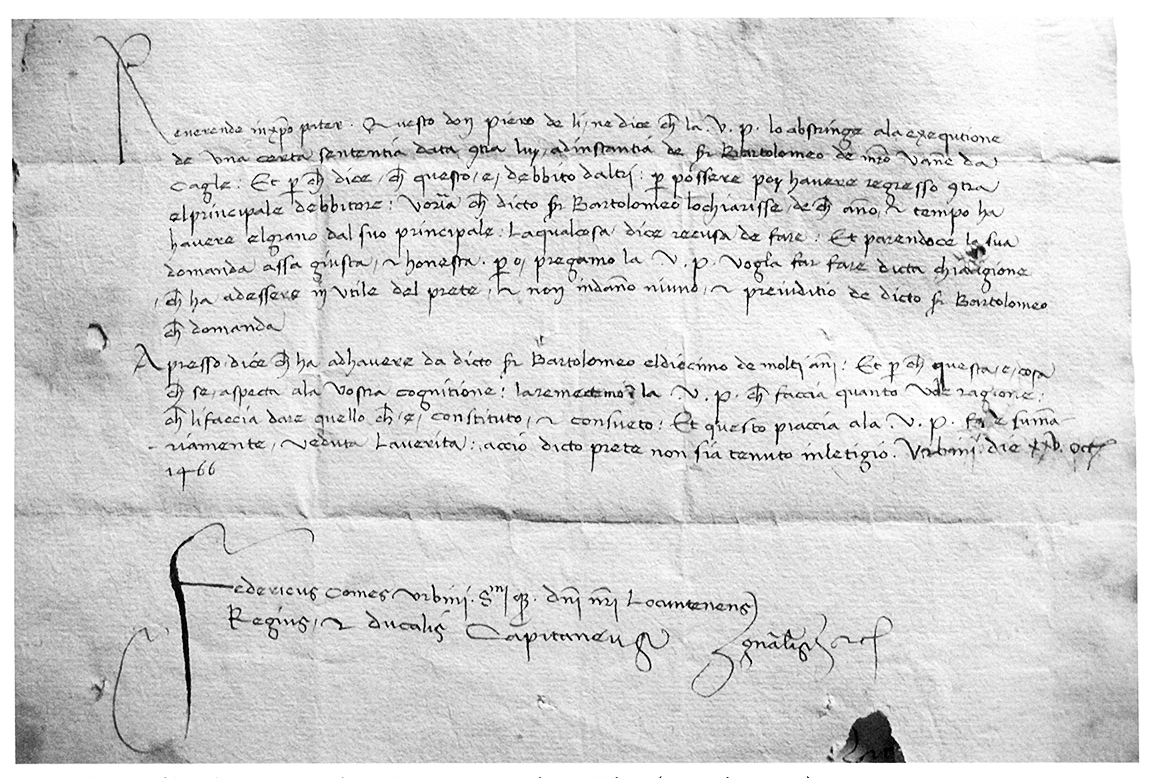 Reverende in xpo pater. Questo don piero de li, ne dice ch la .V. p. lo abstringe ala exequtione
de una certa sententia data 9tra luy, ad instantia de sr Bartolomeo de mro Vanne da
Cagle: Et p ch dice, ch questo, e, debbito daltri: p possere poy havere regresso 9tra
el principale debbitore: Voria ch dicto sr Bartolomeo lo chiarisse, de ch ano, & tempo ha
havere el grano dal suo principale: Laqualcosa dice recusa de fare: Et parendoce la sua
domanda assa giusta, & honesta. p o, pregamo la .V. p. Vogla far fare dicta chiaragione
, ch ha ad essere in utile del prete, & non in dano niuno, & preiuditio de dicto sr Bartolomeo
ch domanda
Apresso, dice ch ha ad havere da dicto sr Bartolomeo el diecimo de molti ani: Et p ch questa, e, cosa
ch se, aspecta ala Vostra cognitione: la remectemo la .V. p. ch faccia quanto vole ragione:
ch li faccia dare quello ch, e, constituto, & consueto: Et questo piaccia ala .V. p. fare suma
riamente, veduta La verita: acciò dicto prete non sia tenuto in letigio. Urbini. die xxv. oct
1466
Federicus Comes Urbini. Smi q3. dni nri Locumtenens
Regius, & ducalis Capitaneus gnalis &c